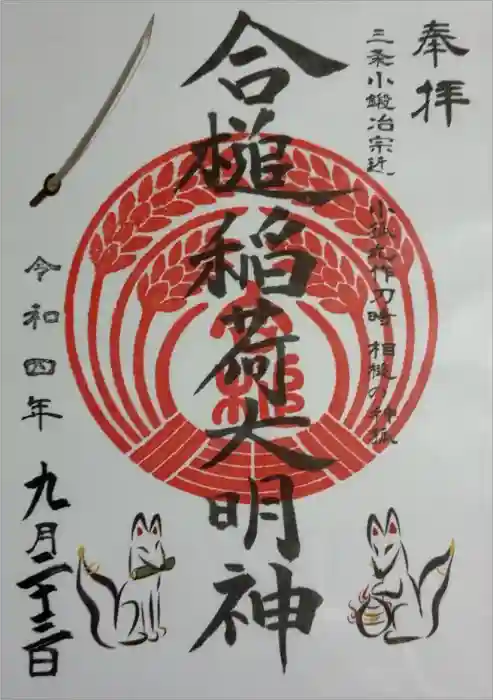 奉拝
三条小鍛冶宗近 小狐丸作刀時 相槌の神狐
合槌稲荷大明神
令和四年
九月二十三日